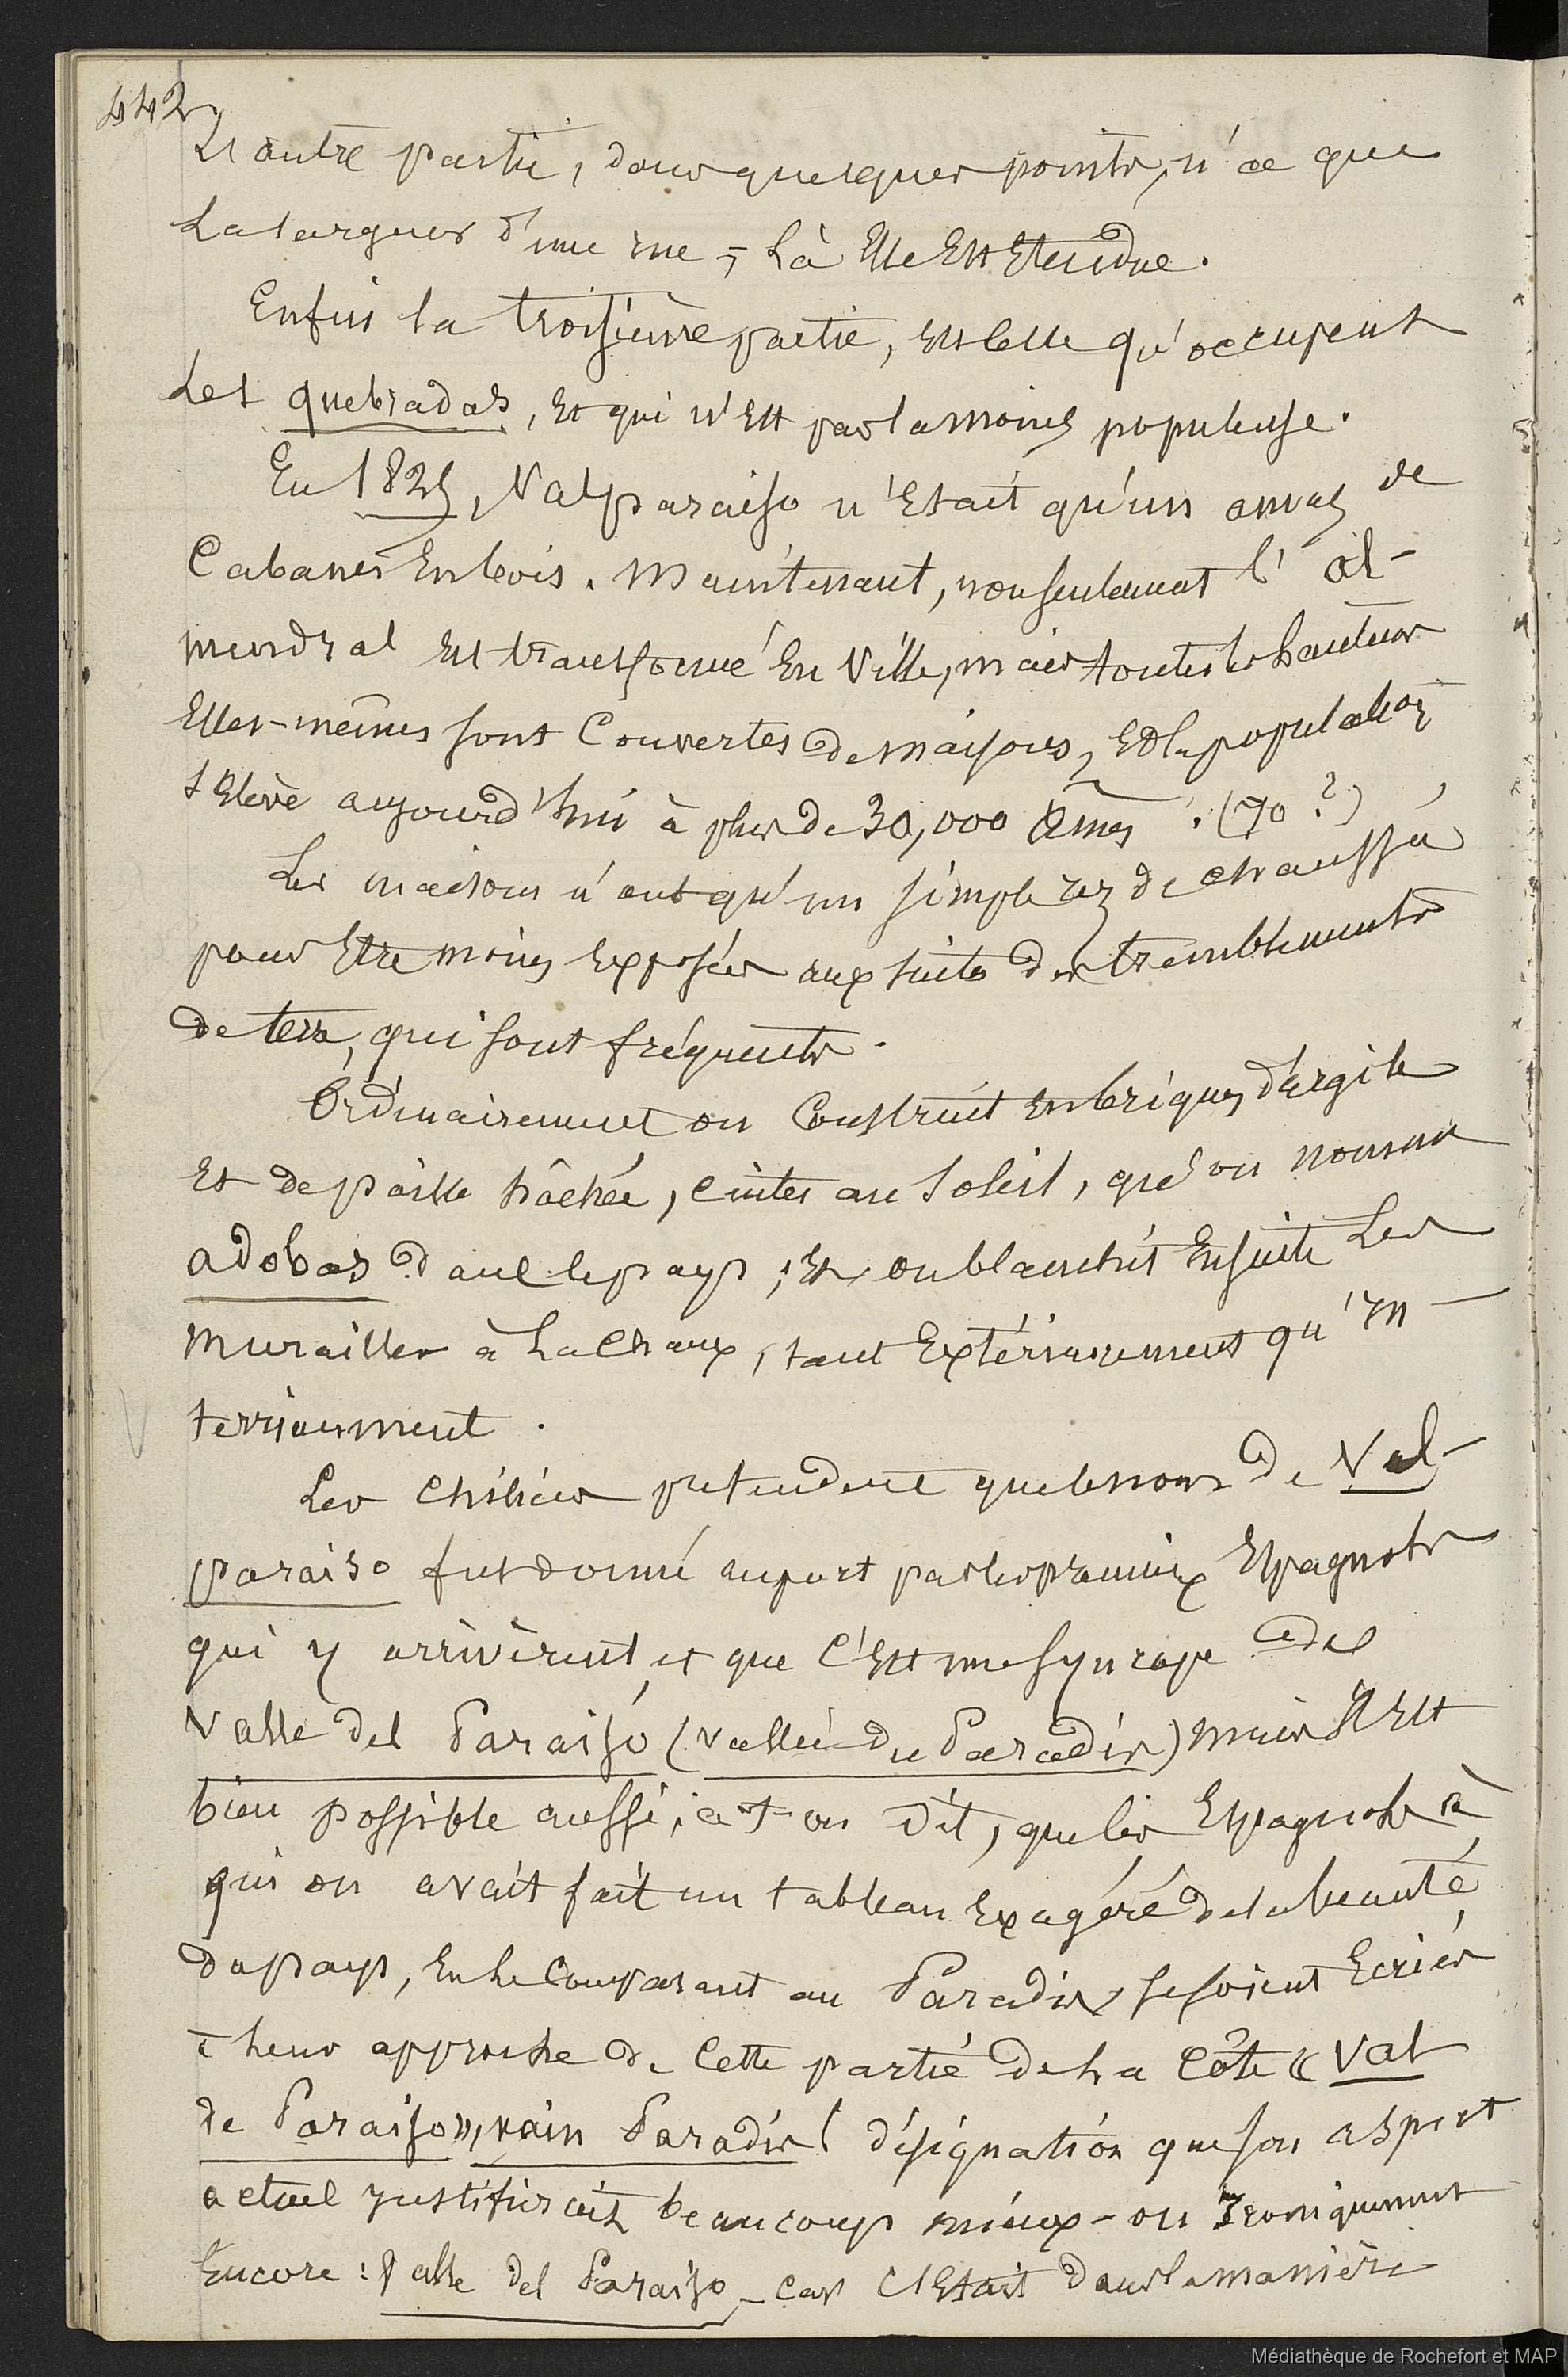 442
L'autre partie, dans quelques points, n'a que
La largeur d'une rue ; Là Elle Est Etendue.
Enfin la troisième partie, est celle qu'occupent
Les quebradas, Et qui n'Est pas la moins populeuse.
En 1825, Valparaiso n'Etait qu'un amas de
Cabanes En bois. Maintenant, non seulement l'al-
mendral est transformé En Ville, mais toutes les hauteurs
Elles-mêmes sont Couvertes de maisons, Et la population
s'Elève aujourd'hui à plus de 30,000 âmes. (70 ?)
Les maisons n'ont qu'un simple rez de chaussée
pour Etre moins Exposées aux suites des tremblements
de terre, qui sont fréquents.
Ordinairement on Construit en briques d'argile
Et de paille hâchée, cuites au Soleil, qu'on nomme
adobas dans le pays ; Et on blanchit Ensuite Les
Murailles à La Chaux, tant Extérieurement qu'in-
terieurement.
Les Chiliens prétendent que le nom de Val-
paraiso fut donné au port par les premiers Espagnols
qui y arrivèrent, et que C'Est une syncope de
Valle del Paraiso (vallée du Paradis) mais il Est
bien possible aussi, a-t-on dit, que les Espagnols à
qui on avait fait un tableau Exagéré de la beauté
du pays, En le Comparant au Paradis, se soient Ecriés
à leur approche de Cette partie de La Côte « Val
de Paraiso », vain Paradis ! désignation que son aspect
actuel justifierait beaucoup mieux - ou Ironiquement
Encore : Valle del Paraiso - Car C'Etait dans la manière
Médiathèque de Rochefort et MAP